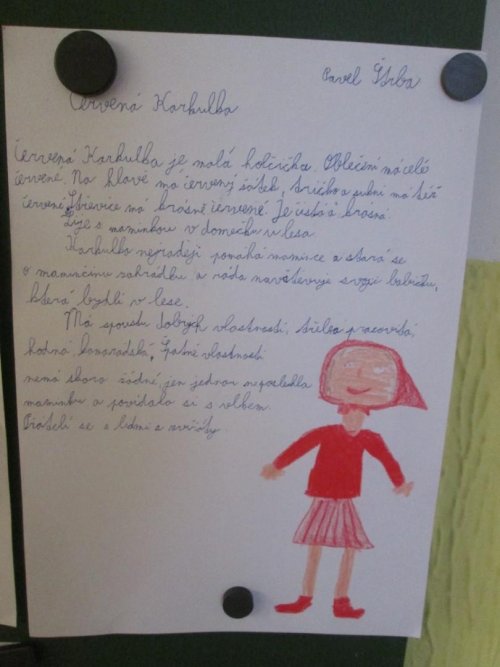 Pavel Štrba
Červená Karkulka
Červená Karkulka je malá holčička. Oblečení má celé
červené. Na hlavě má červený šátek, tričko a sukni má též
červené. Střevíce má krásně červené. Je čistá a krásná.
Žije s maminkou v domečku u lesa.
Karkulka nejraději pomáhá mamince a stará se
o maminčinu zahrádku a ráda navštěvuje svoji babičku,
která bydlí v lese.
Má spoustu dobrých vlastností, třeba pracovitá,
hodná kamarádská, Špatné vlastnosti
nemá skoro žádné, jen jednou neposlechla
maminku a povídala si s vlkem.
Přátelí se s lidmi a zvířátky.